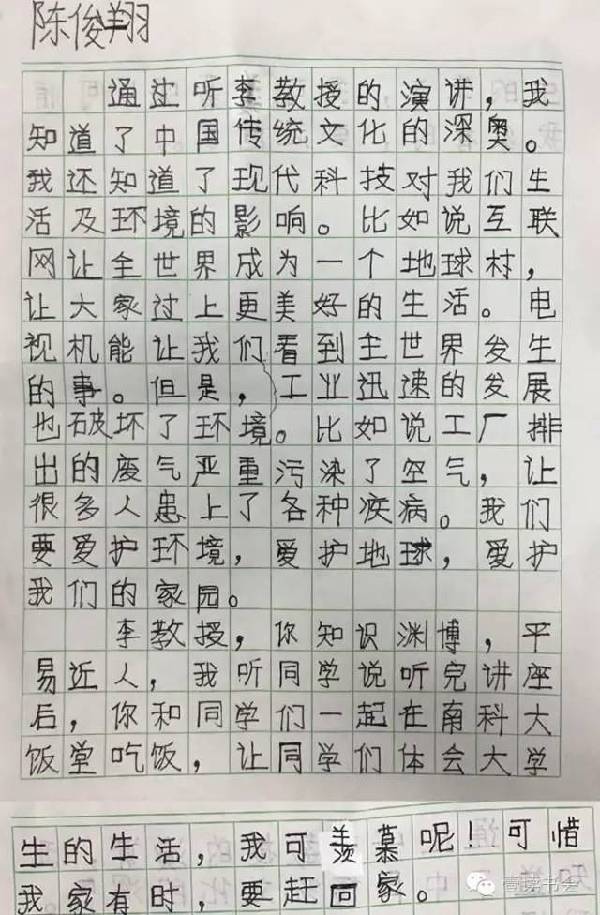 陈俊翔
通过听李教授的演讲，我
知道了中国传统文化的深奥。
我还知道了现代科技对我们生
活及环境的影响。比如说互联
网让全世界成为一个地球村，
让大家过上更美好的生活。电
视机能让我们看到主世界发生
的事。但是，工业迅速的发展
也破坏了环境。比如说工厂排
出的废气严重污染了空气，让
很多人患上了各种疾病。我们
要爱护环境，爱护地球，爱护
我们的家园。
李教授，你知识渊博，平
易近人，我听同学说听完讲座
后，你和同学们一起在南科大
饭堂吃饭，让同学们体会大学
生的生活，我可羡慕呢！可惜
我家有时，要赶回家。